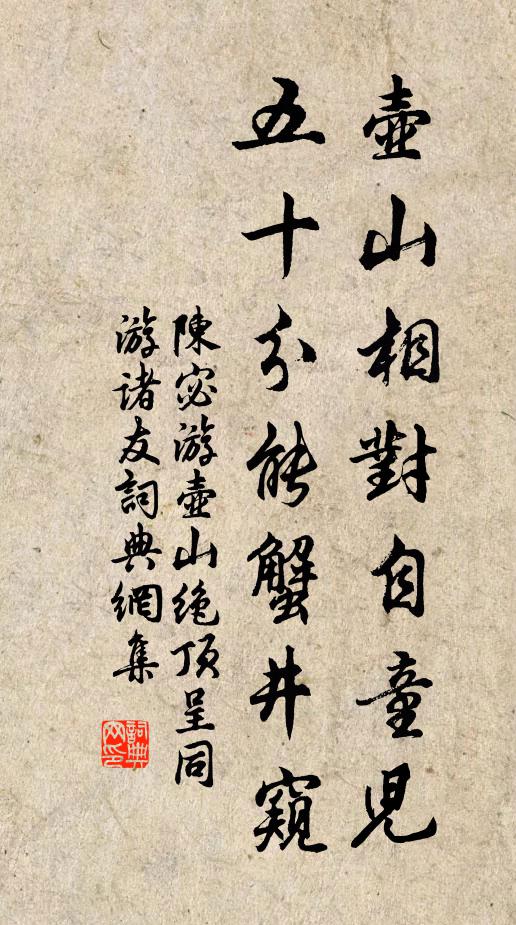 壺山相對自童兒
五十分能蟹井窺
陳宓游壺山絶頂呈同
游诸友詞典網集
詞典網印